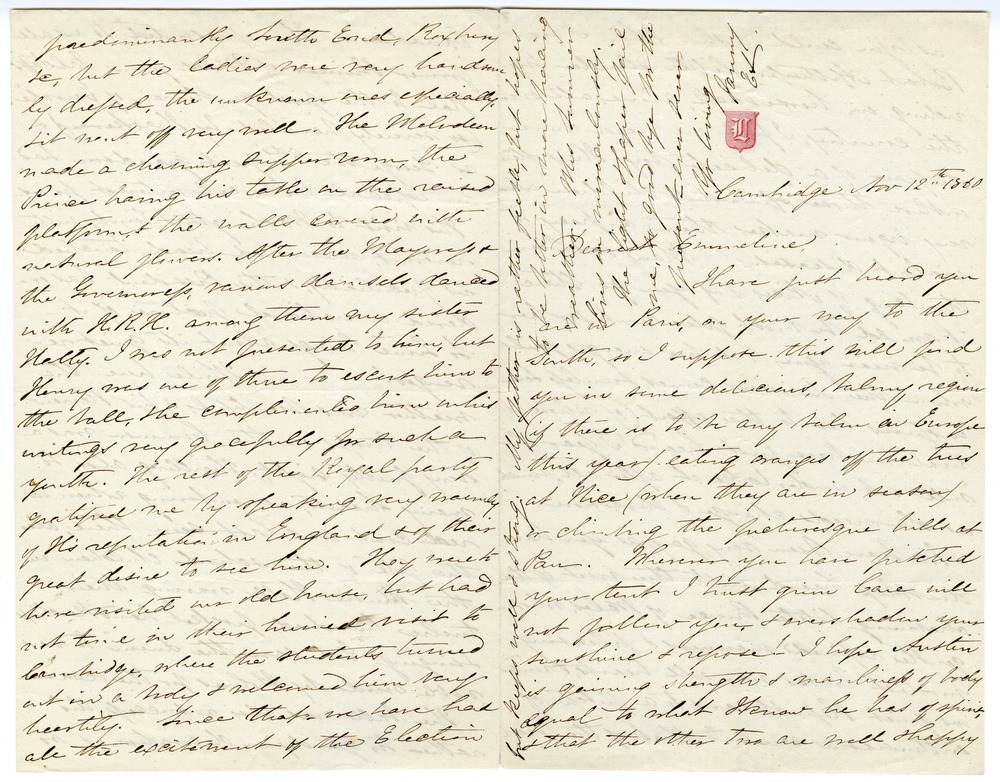 Cambridge Nov 12th 1860
Dearest Emmeline,
I have just heard you
are in Paris, on your way to the
South, so I suppose this will find
you in some delicious, balmy region
(if there is to be any balm in Europe
this year) eating oranges off the trees
at Nice (when they are in season)
or climbing the picturesque hills at
Pau. Wherever you have pitched
your tent I trust grim Care will
not follow you, & overshadow your
sunshine & repose – I hope Austin
is gaining strength & manliness of body
equal to what I know he has of spirit,
& that the other two are well & happy
predominantly South End, Roxbury
&c, but the ladies were very handsome
ly dressed, the unknown ones especially,
& it went off very well. The Melodeon
made a charming supper room, the
Prince having his table on the raised
platform, & the walls covered with
natural flowers. After the Mayoress &
the Governess, various damsels danced
with H.R.H. among them my sister
Hatty. I was not presented to him, but
Henry was one of those to escort him to
the ball, & he complimented him on his
writings very gracefully for such a
youth. The rest of the Royal party
gratified me by speaking very warmly
of H's reputation in England & of their
great desire to see him. They were to
have visited our old house, but had
not time in their hurried visit to
Cambridge, where the students turned
out in a body & welcomed him very
heartily. Since that we have had
all the excitement of the Election
but keeps well & strong. My father is rather feeble, but hopes
to be better in more bracing
weather. Mrs Sumner
lives on miraculously.
The light & paper fail
me, so good bye for the
present – ever dear
Yr loving
Fanny
L